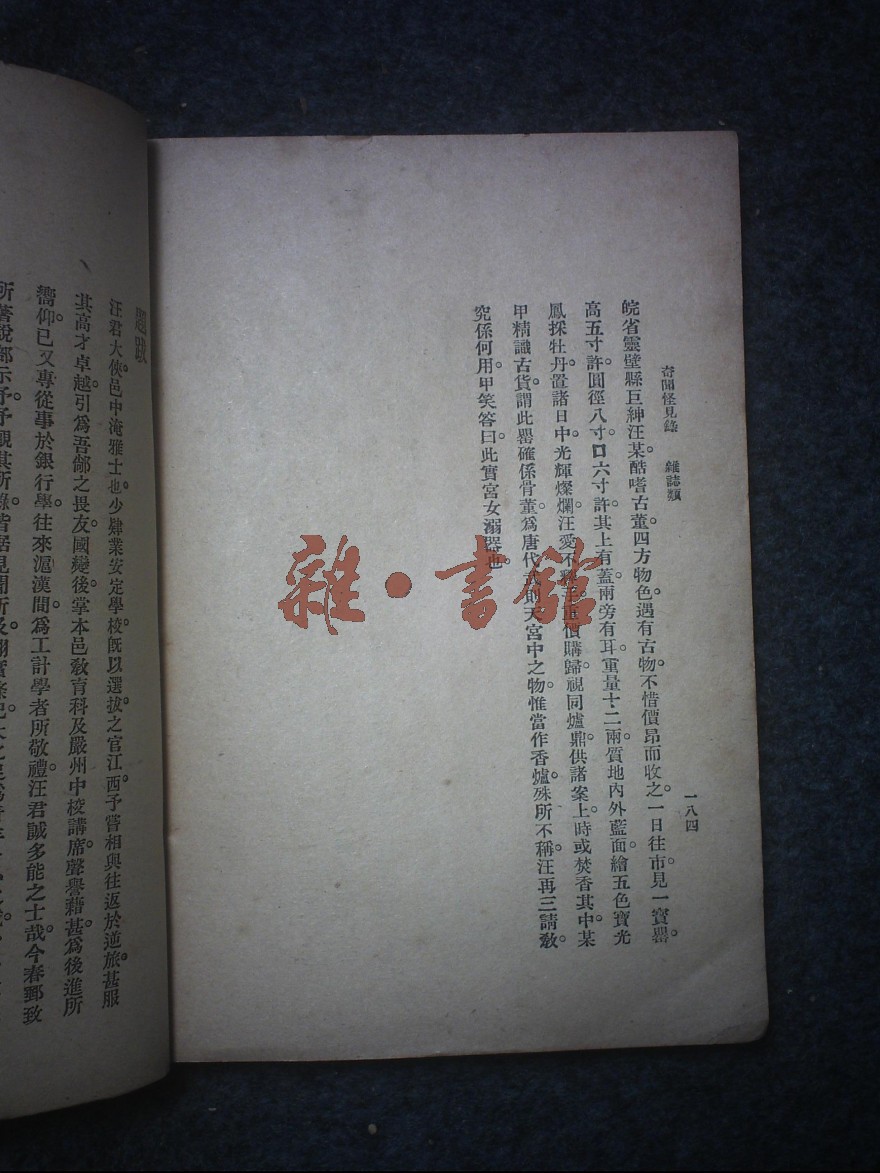 奇聞怪見錄　雜誌類
一八四
皖省靈壁縣巨紳汪某。酷嗜古董。四方物色。遇有古物。不惜價昂而收之。一日往市。見一寶器。
高五寸許。圓徑八寸。口六寸許。其上有蓋。兩旁有耳。重量十二兩。質地內外藍面。繪五色寶光
鳳採牡丹。置諸日中。光輝燦爛。汪愛不釋手。重價購歸。視同爐鼎。供諸案上。時或焚香其中。某
甲精識古貨。謂此罌確係骨董。爲唐代 則天宮中之物。惟當作香爐。殊所不稱。汪再三請敎。
究係何用。甲笑答曰。此實宮女溺器也。
題跋
汪君大俠。邑中淹雅士也。少肄業安定學校。旣以選拔之官江西。予嘗相與往返於逆旅。甚服
其高才卓越。引爲吾鄰之畏友。國變後掌本邑敎育科及嚴州中校講席。聲譽藉甚。爲後進所
嚮仰。已又專從事於銀行學。往來滬漢間。爲工計學者所敬禮。汪君誠多能之士哉。今春郵致
所著說部示予。予觀其所錄。皆据見聞所及
雜·書館